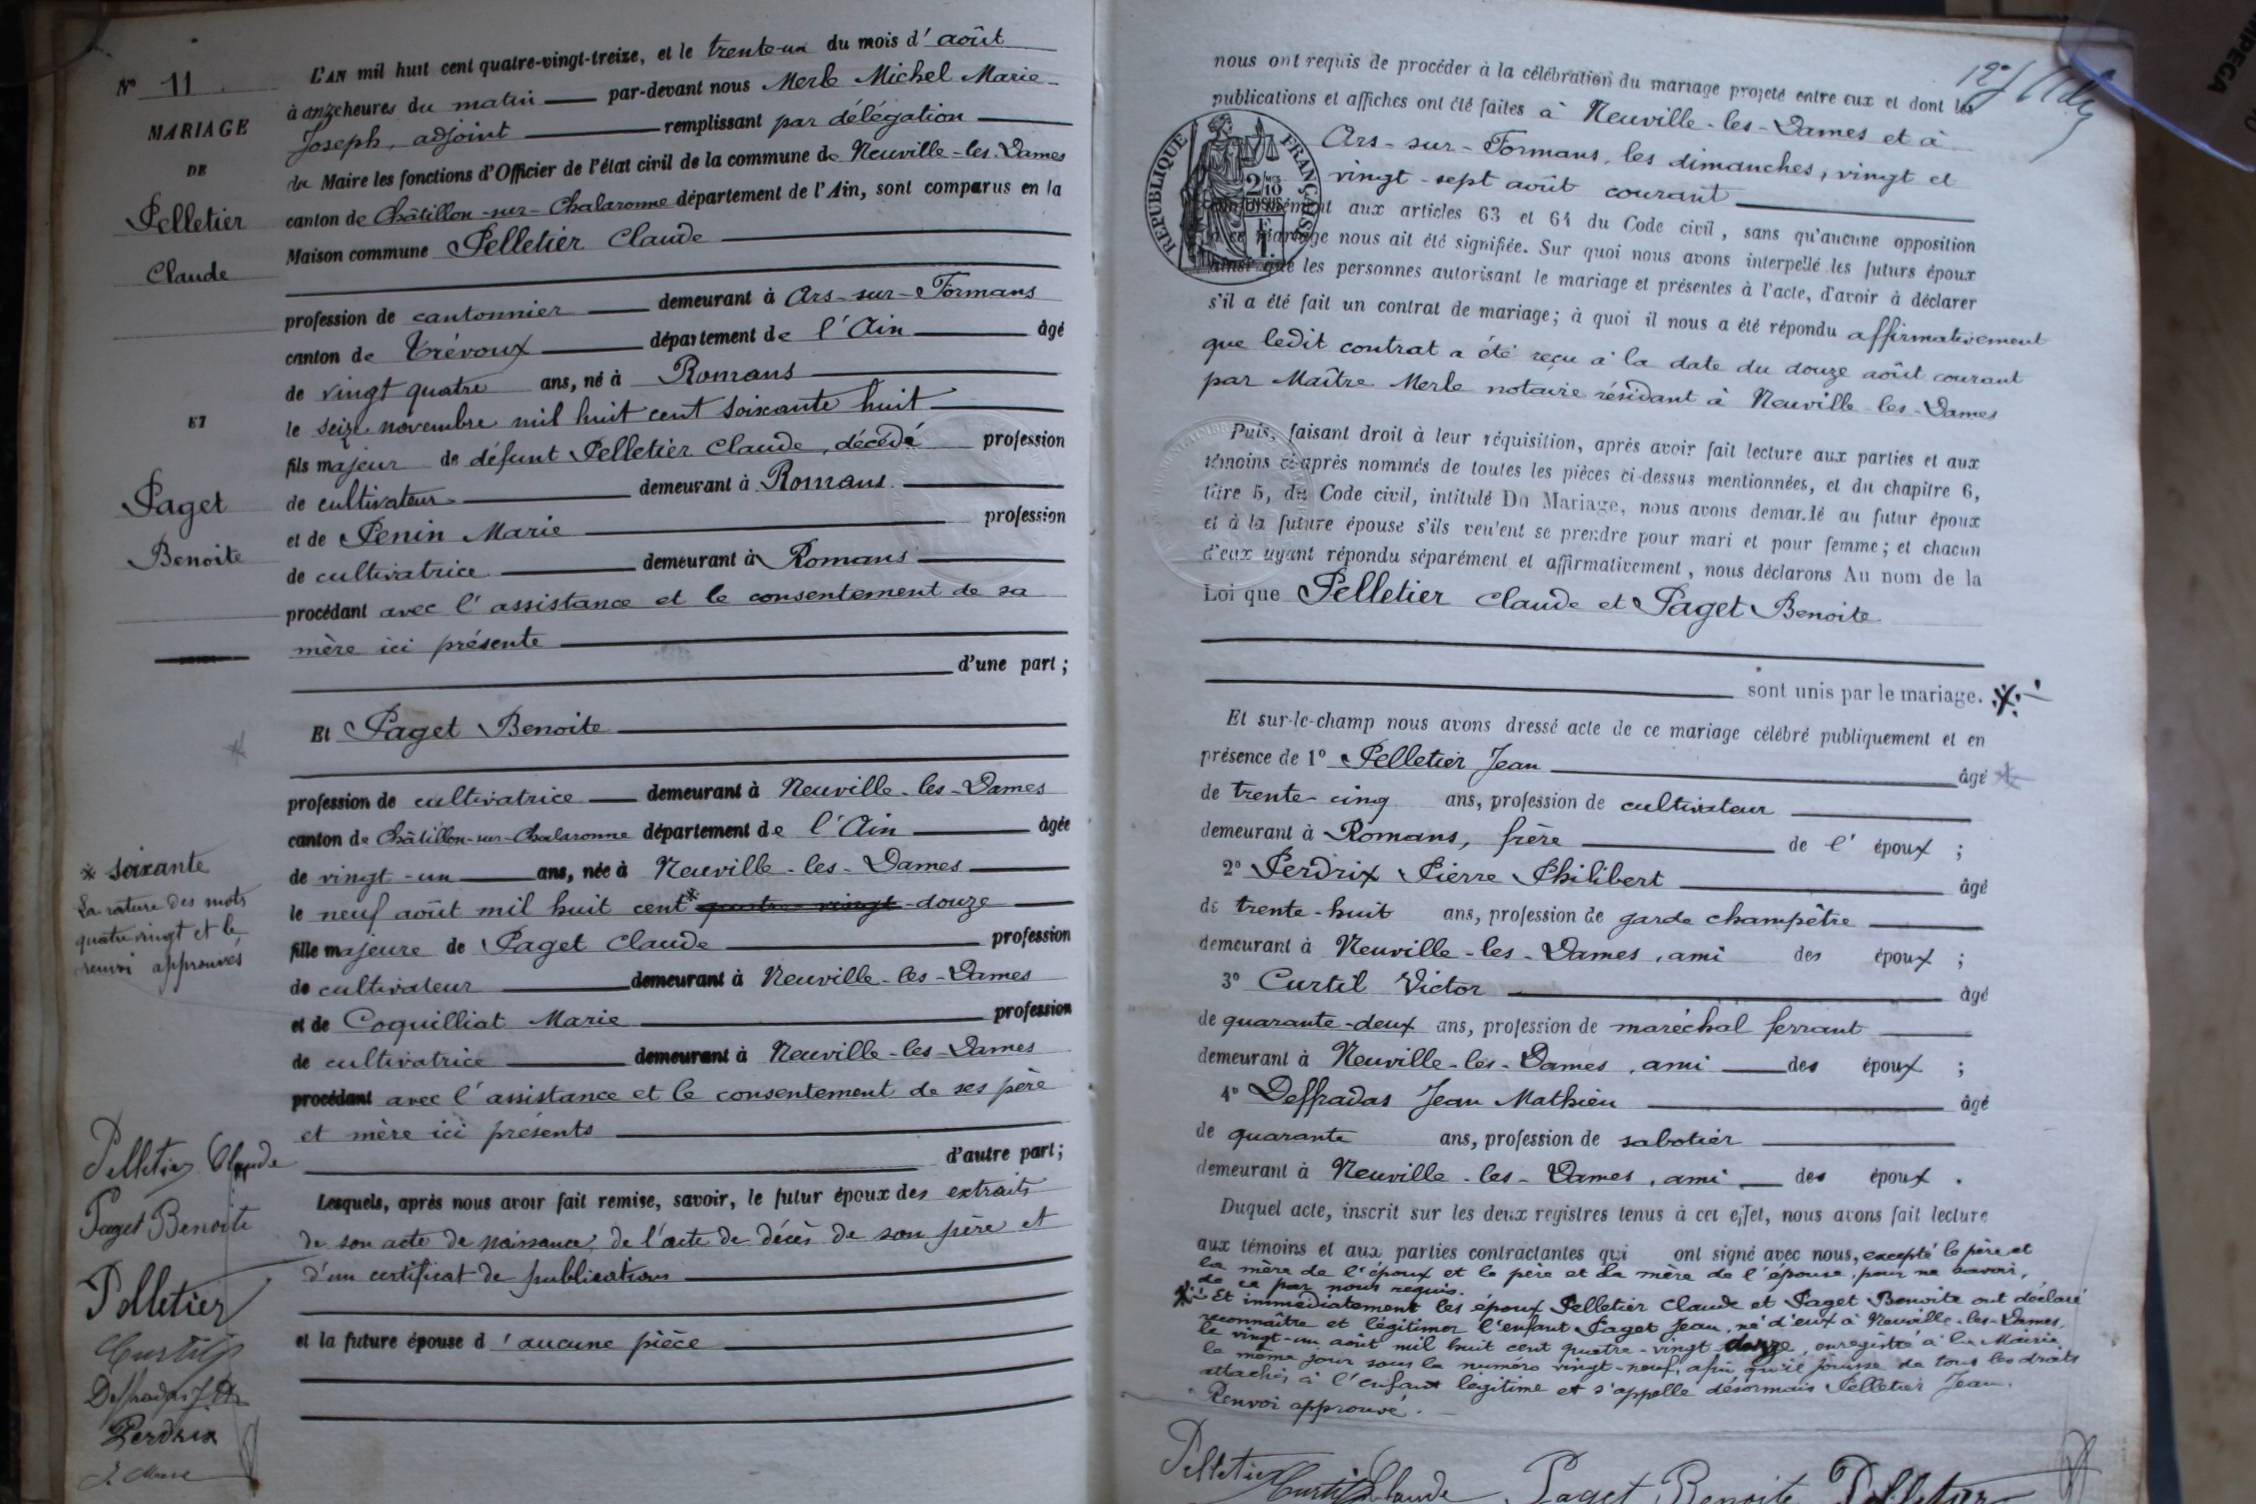 N° 11
MARIAGE
DE
Pelletier
Claude
ET
Paget
Benoite
* soixante
La rature des mots
quatre vingt et le
renvoi approuvés
Pelletier Claude
Paget Benoite
Pelletier
Curtil
Deffradas J. M.
Perdrix
L'AN mil huit cent quatre-vingt-treize, et le trente-un du mois d'août
à onze heures du matin par-devant nous Merle Michel Marie-
Joseph, adjoint remplissant par délégation
du Maire les fonctions d'Officier de l'état civil de la commune de Neuville-les-Dames
canton de Châtillon-sur-Chalaronne département de l'Ain, sont comparus en la
Maison commune Pelletier Claude
profession de cantonnier demeurant à Ars-sur-Formans
canton de Trévoux département de l'Ain âgé
de vingt quatre ans, né à Romans
le seize novembre mil huit cent soixante huit
fils majeur de défunt Pelletier Claude, décédé profession
de cultivateur demeurant à Romans
et de Penin Marie profession
de cultivatrice demeurant à Romans
procédant avec l'assistance et le consentement de sa
mère ici présente
d'une part;
Et Paget Benoite
profession de cultivatrice demeurant à Neuville-les-Dames
canton de Châtillon-sur-Chalaronne département de l'Ain âgée
de vingt-un ans, née à Neuville-les-Dames
le neuf août mil huit cent * quatre vingt-douze
fille majeure de Paget Claude profession
de cultivateur demeurant à Neuville-les-Dames
et de Coquilliat Marie profession
de cultivatrice demeurant à Neuville-les-Dames
procédant avec l'assistance et le consentement de ses père
et mère ici présents
d'autre part;
Lesquels, après nous avoir fait remise, savoir, le futur époux des extraits
de son acte de naissance, de l'acte de décès de son père et
d'un certificat de publications
et la future épouse d'aucune pièce
nous ont requis de procéder à la célébration du mariage projeté entre eux et dont les
publications et affiches ont été faites à Neuville-les-Dames et à
Ars-sur-Formans, les dimanches, vingt et
vingt-sept août courant
RÉPUBLIQUE FRANÇAISE
conformément aux articles 63 et 64 du Code civil, sans qu'aucune opposition
à ce mariage nous ait été signifiée. Sur quoi nous avons interpellé les futurs époux
ainsi que les personnes autorisant le mariage et présentes à l'acte, d'avoir à déclarer
s'il a été fait un contrat de mariage; à quoi il nous a été répondu affirmativement
que ledit contrat a été reçu à la date du douze août courant
par Maître Merle notaire résidant à Neuville-les-Dames
Puis, faisant droit à leur réquisition, après avoir fait lecture aux parties et aux
témoins ci-après nommés de toutes les pièces ci-dessus mentionnées, et du chapitre 6,
titre 5, du Code civil, intitulé Du Mariage, nous avons demandé au futur époux
et à la future épouse s'ils veulent se prendre pour mari et pour femme; et chacun
d'eux ayant répondu séparément et affirmativement, nous déclarons Au nom de la
Loi que Pelletier Claude et Paget Benoite
sont unis par le mariage.
Et sur-le-champ nous avons dressé acte de ce mariage célébré publiquement et en
présence de 1° Pelletier Jean âgé
de trente-cinq ans, profession de cultivateur
demeurant à Romans, frère de l'époux;
2° Perdrix Pierre Philibert âgé
de trente-huit ans, profession de garde champêtre
demeurant à Neuville-les-Dames, ami des époux;
3° Curtil Victor âgé
de quarante-deux ans, profession de maréchal ferrant
demeurant à Neuville-les-Dames, ami des époux;
4° Deffradas Jean Mathieu âgé
de quarante ans, profession de sabotier
demeurant à Neuville-les-Dames, ami des époux.
Duquel acte, inscrit sur les deux registres tenus à cet effet, nous avons fait lecture
aux témoins et aux parties contractantes qui ont signé avec nous, excepté le père et
la mère de l'époux et le père et la mère de l'épouse, pour ne savoir,
de ce par nous requis.
Et immédiatement les époux Pelletier Claude et Paget Benoite ont déclaré
reconnaître et légitimer l'enfant Paget Jean, né d'eux à Neuville-les-Dames,
le vingt-un août mil huit cent quatre-vingt douze, enregistré à la Mairie
le même jour sous le numéro vingt-neuf, afin qu'il jouisse de tous les droits
attachés à l'enfant légitime et s'appelle désormais Pelletier Jean.
Renvoi approuvé.
Pelletier Claude Curtil Paget Benoite Pelletier
IPEGA